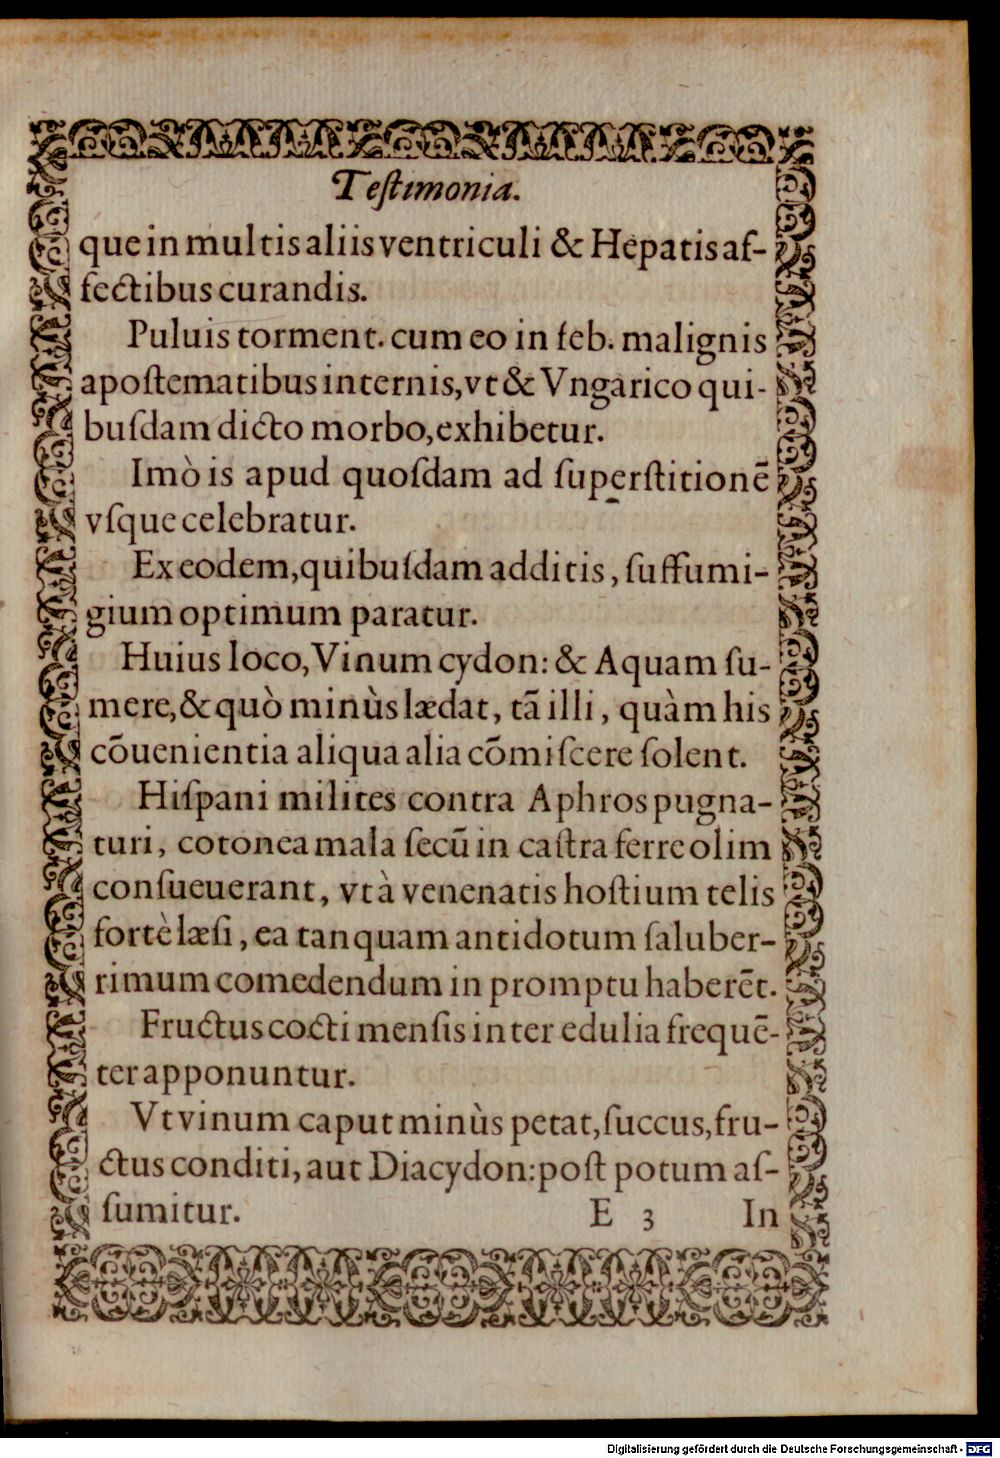 Teſtimonia.
que in multis aliis ventriculi & Hepatis af-
fectibus curandis.
Puluis torment. cum eo in feb. malignis
apoſtematibus internis, vt & Vngarico qui-
buſdam dicto morbo, exhibetur.
Imò is apud quoſdam ad ſuperſtitionē
vſque celebratur.
Ex eodem, quibuſdam additis, ſuffumi-
gium optimum paratur.
Huius loco, Vinum cydon: & Aquam ſu-
mere, & quò minùs lædat, tā illi, quàm his
cōuenientia aliqua alia cōmiſcere ſolent.
Hiſpani milites contra Aphros pugna-
turi, cotonea mala ſecū in caſtra ferre olim
conſueuerant, vt à venenatis hoſtium telis
fortè læſi, ea tanquam antidotum ſaluber-
rimum comedendum in promptu haberēt.
Fructus cocti menſis inter edulia frequē-
ter apponuntur.
Vt vinum caput minùs petat, ſuccus, fru-
ctus conditi, aut Diacydon: poſt potum aſ-
ſumitur. E 3 In
Digitalisierung gefördert durch die Deutsche Forschungsgemeinschaft - DFG